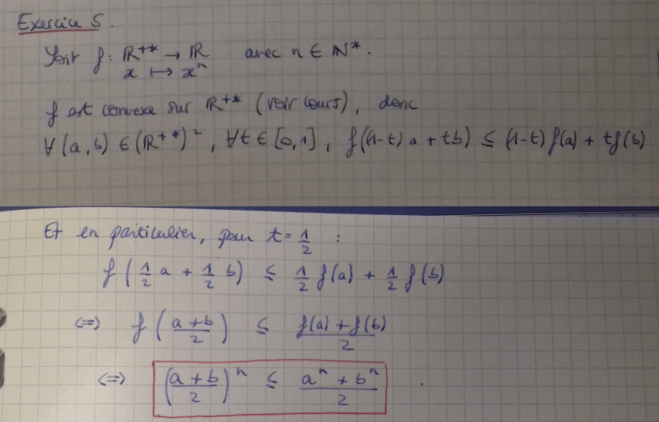 Exercice 5.
Soit f : ℝ⁺* → ℝ avec n ∈ ℕ*.
x ↦ xⁿ
f est convexe sur ℝ⁺* (voir cours), donc
∀(a,b) ∈ (ℝ⁺*)², ∀t ∈ [0,1], f((1-t)a + tb) ≤ (1-t)f(a) + tf(b)
Et en particulier, pour t = 1/2 :
f(1/2 a + 1/2 b) ≤ 1/2 f(a) + 1/2 f(b)
⟺ f((a+b)/2) ≤ (f(a)+f(b))/2
⟺ ((a+b)/2)ⁿ ≤ (aⁿ+bⁿ)/2.